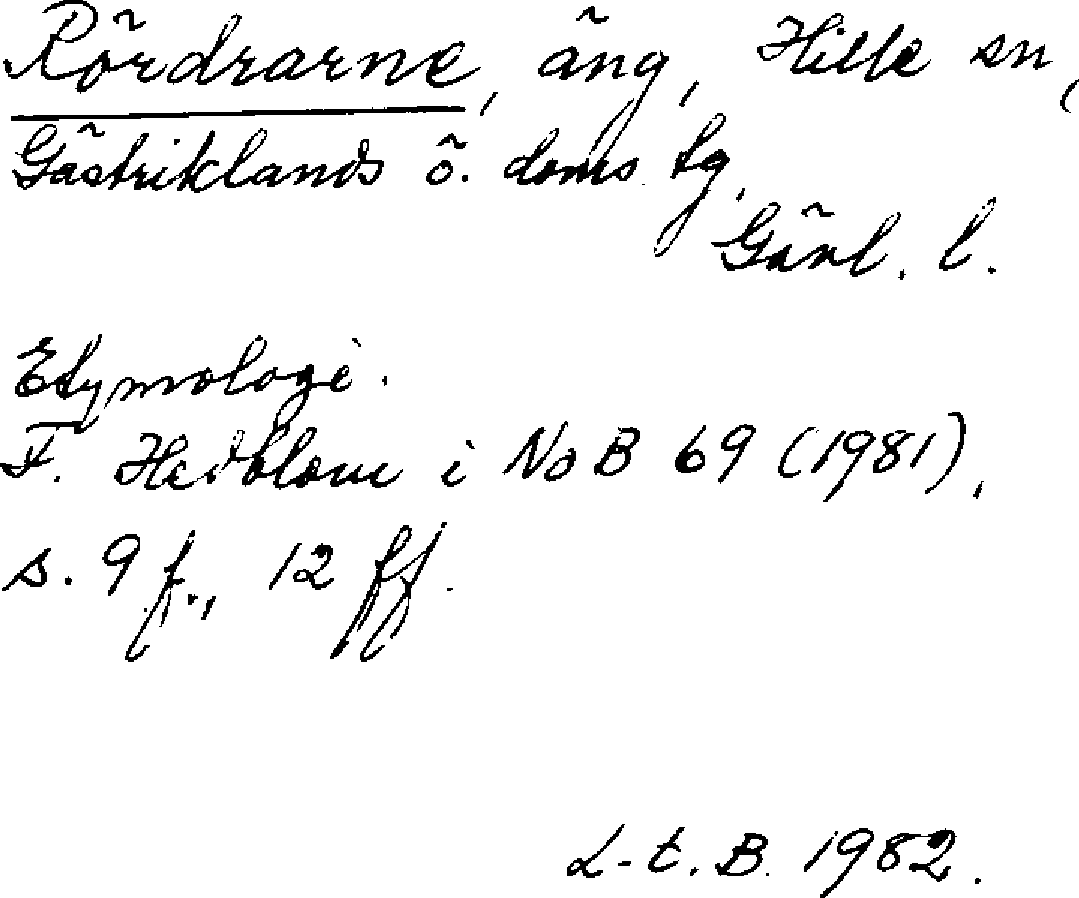 Rördrarne, äng, Hille sn,
Gästriklands ö. doms. tg,
Gävl. l.
Etymologi.
F. Hedblom i NoB 69 (1981),
s. 9 f., 12 ff.
L-t. B. 1982.